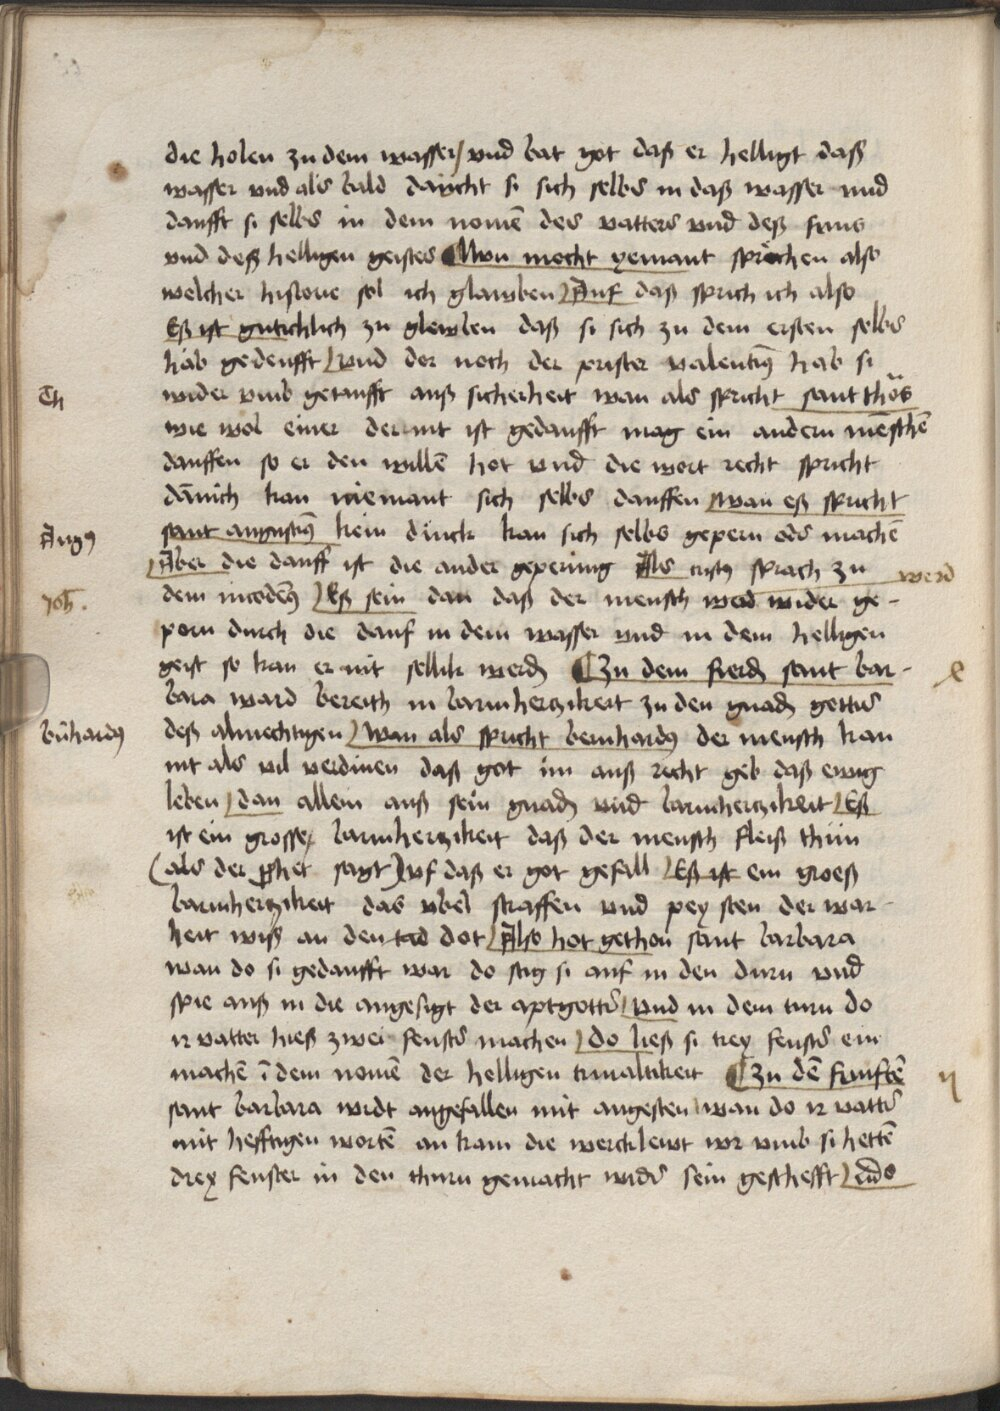 die holen zu dem wasser / vnd bat got daß er helligt daß
wasser vnd als bald daucht si sich selbs in daß wasser vnd
daufft si selbs in dem nomē des vatters vnd deß suns
vnd deß helligen geistes Nvn mocht yemant sprechen also
welcher historie sol ich glawben Auf daß sprich ich also
Eß ist gutichlich zu glewben daß si sich zu dem ersten selbs
hab gedeufft vnd der noch der prister valentiꝰ hab si
Th
wider vmb getaufft auß sicherheit wan als spricht sant thōs
wie wol einer der nit ist gedaufft mag ein andern mēschē
dauffen so er den willē hot vnd die wort recht spricht
dānich kan niemant sich selbs dauffen wan eß spricht
Augꝰ
sant augustiꝰ kein dinck kan sich selbs gepern ods machē
Aber die dauff ist die ander geperung Als cristꝰ sprach zu
Joh̄.
dem nicodēꝰ Eß sein dan daß der mensch werd wider ge-
werd
porn durch die dauf in dem wasser vnd in dem helligen
geist so kan er nit sellik werdn Zu dem fierdn sant bar-
e
bara ward bereith in barmhertzikeit zu den gnadn gottis
bn̄hardꝰ
deß almechtigen wan als spricht bernhardꝰ der mensch kan
nit als vil verdinen daß got im auß recht geb daß ewig
leben dan allein auß sein gnadn vnd barmhertzikeit Eß
ist ein grosse barmhertzikeit daß der mensch fleiß thün
(als der ꝓhet sagt) vf daß er got gefall Eß ist ein groeß
barmhertzikeit das vbel straffen vnd pey sten der war-
heit wiß an den tad dot Also hot gethon sant barbara
wan do si gedaufft war do stig si auf in den durn vnd
spie auß in die angesigt der aptgottr vnd in dem turn do
ir vatter hieß zwei fenstr machen do ließ si trey fenstr ein
machē ī dem nomē der helligen trinaltikeit Zu dē funftē
η
sant barbara wirdt angefallen mit angesten wan do ir vattr
mit hefftigen wortē an kam die werckleut wor vmb si hettē
drey fenster in den thurn gemacht widr sein geschefft